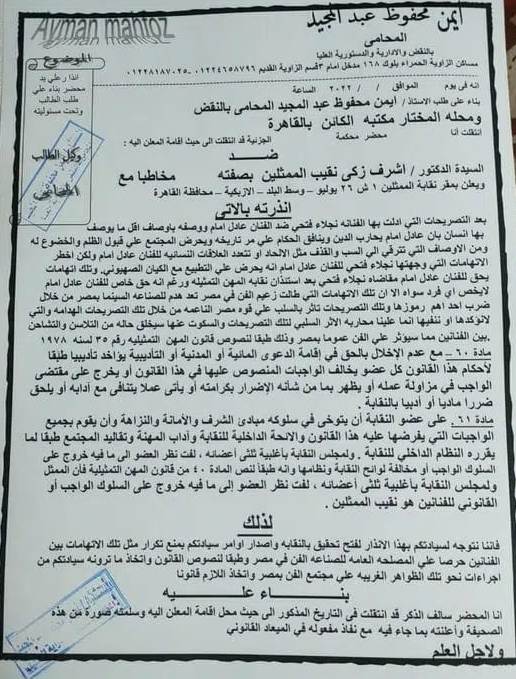 Ayman mahfoz
أيمن محفوظ عبد المجيد
المحامى
بالنقض والادارية والدستورية العليا
مساكن الزاوية الحمراء بلوك ١٦٨ مدخل امام ٣ قسم الزاوية القديم ٠١٢٢٤٦٥٨٧٩٦ - ٠١٢٢٨١٨٧٠٢٥
الموضوع
انذار علي يد
محضر بناء علي
طلب الطالب
وتحت مسئوليته
وكيل الطالب
المحامى
انه في يوم الموافق / / ٢٠٢٢ الساعة
بناء على طلب الاستاذ / أيمن محفوظ عبد المجيد المحامى بالنقض
ومحله المختار مكتبه الكائن بالقاهرة
انتقلت أنا محضر محكمة الجزئية قد انتقلت الى حيث اقامة المعلن اليه :
ضد
السيدة الدكتور / أشرف زكى نقيب الممثلين بصفته مخاطبا مع
ويعلن بمقر نقابة الممثلين ١ ش ٢٦ يوليو – وسط البلد – الازبكية – محافظة القاهرة
انذرته بالاتى
بعد التصريحات التي ادلت بها الفنانه نجلاء فتحي ضد الفنان عادل امام ووصفه باوصاف اقل ما يوصف
بها انسان بان عادل امام يحارب الدين وينافق الحكام علي مر تاريخه ويحرض المجتمع علي قبول الظلم والخضوع له
ومن الاوصاف التي تترقي الي السب والقذف مثل الالحاد او تتعدد العلاقات النسائيه للفنان عادل امام ولكن اخطر
الاتهامات التي وجهتها نجلاء فتحي للفنان عادل امام انه يحرض علي التطبيع مع الكيان الصهيوني. وتلك اتهامات
يحق للفنان عادل امام مقاضاه نجلاء فتحي بعد استئذان نقابه المهن التمثيليه ورغم انه حق خاص للفنان عادل امام
لايخص اي فرد سواه الا ان تلك الاتهامات التي طالت زعيم الفن في مصر تعد هدم للصناعه السينما بمصر من خلال
ضرب احد اهم رموزها وتلك التصريحات تاثر بالسلب علي قوه مصر الناعمه من خلال تلك التصريحات الهدامه والتي
لانؤكدها او ننفيها انما علينا محاربه الاثر السلبي لتلك التصريحات والسكوت عنها سيخلق حاله من التلاسن والتشاحن
.بين الفنانين مما سيؤثر علي الفن عموما بمصر وذلك طبقا لنصوص قانون المهن التمثيليه رقم ٣٥ لسنه ١٩٧٨
مادة ٦٠ – مع عدم الإخلال بالحق في إقامة الدعوى المانية أو المدنية أو التأديبية يؤاخذ تأديبيا طبقا
لأحكام هذا القانون كل عضو يخالف الواجبات المنصوص عليها في هذا القانون أو يخرج على مقتضى
الواجب في مزاولة عمله أو يظهر بما من شأنه الإضرار بكرامته أو يأتى عملا يتنافى مع آدابه أو يلحق
ضررا ماديا أو أدبيا بالنقابة .
مادة ٦١ . على عضو النقابة أن يتوخى في سلوكه مبادئ الشرف والأمانة والنزاهة وأن يقوم بجميع
الواجبات التي يفرضها عليه هذا القانون والانحة الداخلية للنقابة وآداب المهنة وتقاليد المجتمع طبقا لما
يقرره النظام الداخلي للنقابة . ولمجلس النقابة بأغلبية ثلثى أعضائه ، لفت نظر العضو إلى ما فيه خروج على
السلوك الواجب أو مخالفة لوائح النقابة ونظامها وانه طبقا لنص المادة ٤٠ من قانون المهن التمثيلية فأن الممثل
ولمجلس النقابة بأغلبية ثلثى أعضائه ، لفت نظر العضو إلى ما فيه خروج على السلوك الواجب أو
القانوني للفنانين هو نقيب الممثلين .
لذلك
فاننا نتوجه لسيادتكم بهذا الانذار لفتح تحقيق بالنقابه واصدار اوامر سيادتكم يمنع تكرار مثل تلك الاتهامات بين
الفنانين حرصا علي المصلحه العامه للصناعه الفن في مصر وطبقا لنصوص القانون واتخاذ ما ترونه سيادتكم من
اجراءات نحو تلك الظواهر الغريبه علي مجتمع الفن بمصر واتخاذ اللازم قانونا
بناء عليه
انا المحضر سالف الذكر قد انتقلت فى التاريخ المذكور الى حيث محل اقامة المعلن اليه وسلمته صورة من هذه
الصحيفة وأعلنته بما جاء فيه مع نفاذ مفعوله في الميعاد القانوني
ولاجل العلم